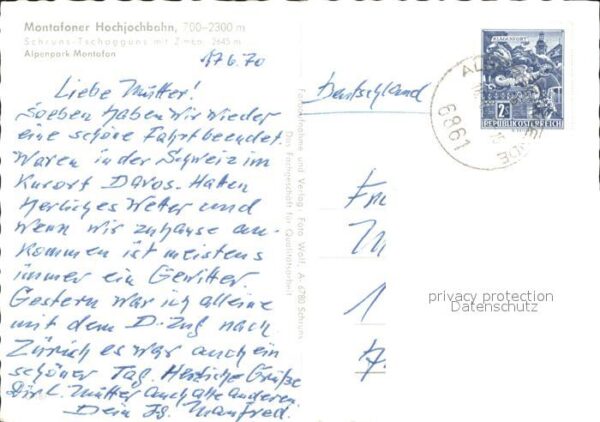 Montafoner Hochjochbahn, 700–2300 m
Schruns-Tschagguns mit Zimba, 2645 m
Alpenpark Montafon
17.6.70
Liebe Mutter!
Soeben haben wir wieder
eine schöne Fahrt beendet.
Waren in der Schweiz im
Kurort Davos. Hatten
herliches Weter und
wenn wir zuhause an-
kommen ist meistens
immer ein Gewitter.
Gestern war ich alleine
mit dem D-Zug nach
Zürich es war auch ein
schöner Tag. Herzliche Grüße
Dir l. Mutter auch alle anderen.
Dein Manfred.
Farbaufnahme und Verlag: Foto Wolf, A-6780 Schruns
Das Fachgeschäft für Qualitätsarbeit
Deutschland
KLAGENFURT
2 S
REPUBLIK ÖSTERREICH
6861
privacy protection
Datenschutz